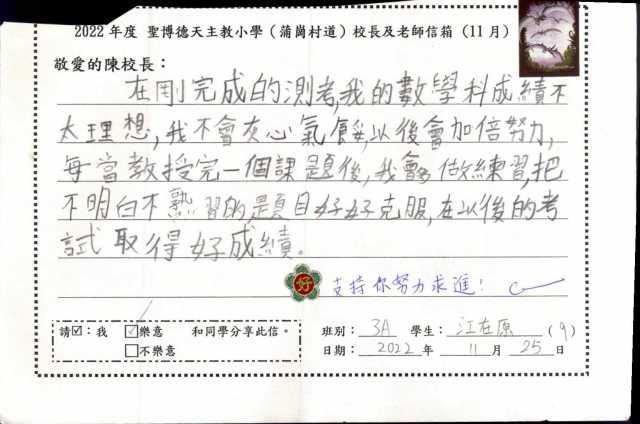 2022 年度 聖博德天主教小學（蒲崗村道）校長及老師信箱（11月）
敬愛的陳校長：
在剛完成的測考,我的數學科成績不
太理想,我不會灰心氣餒,以後會加倍努力,
每當教授完一個課題後,我會多做練習,把
不明白不熟習的題目好好克服,在以後的考
試取得好成績。
好 支持你努力求進！
請☑：我 ☑樂意 和同學分享此信。
□不樂意
班別： 3A 學生： 江在原 (9)
日期： 2022 年 11 月 25 日